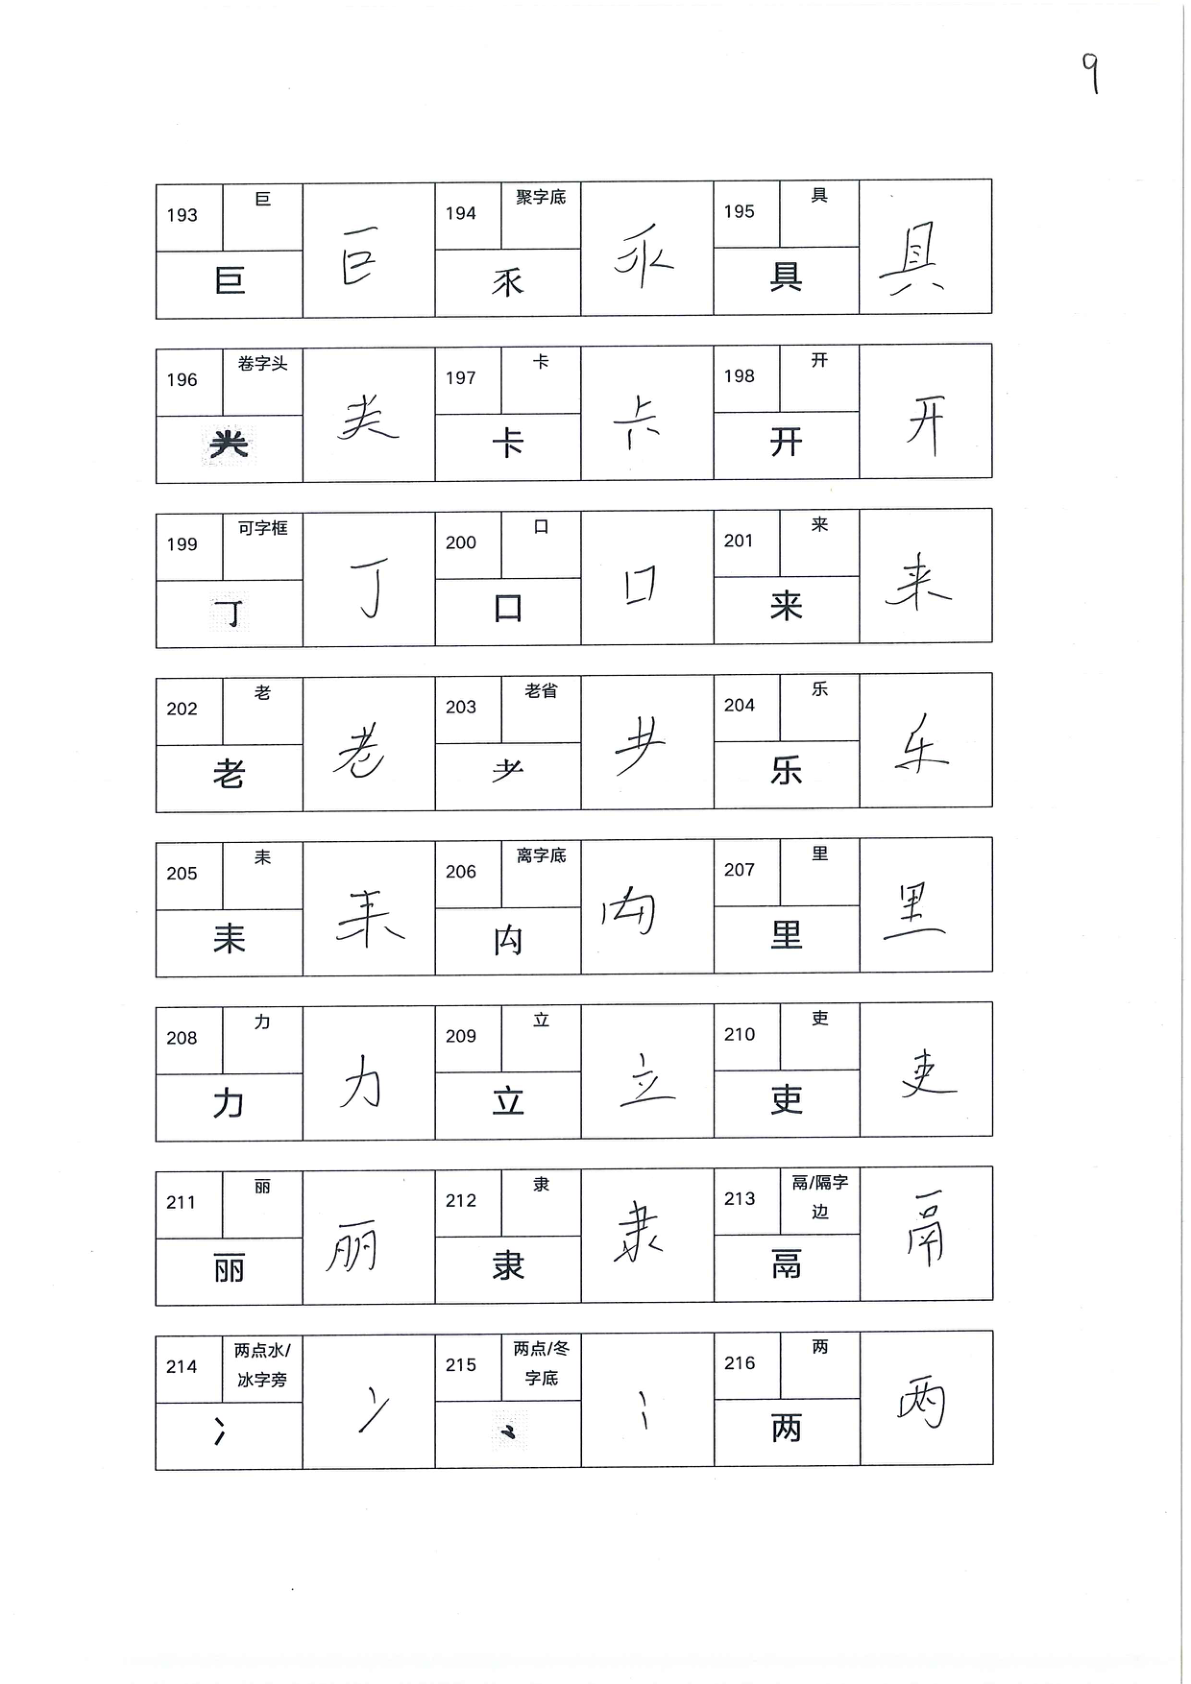 9
193 巨 巨 194 聚字底 乑 195 具 具
巨 乑 具
196 卷字头 197 卡 卡 198 开 开
龹 卡 开
199 可字框 丁 200 口 口 201 来 来
丁 口 来
202 老 老 203 老省 耂 204 乐 乐
老 耂 乐
205 耒 耒 206 离字底 禸 207 里 里
耒 禸 里
208 力 力 209 立 立 210 吏 吏
力 立 吏
211 丽 丽 212 隶 隶 213 鬲/隔字边 鬲
丽 隶 鬲
214 两点水/冰字旁 冫 215 两点/冬字底 216 两 两
冫 ⺀ 两